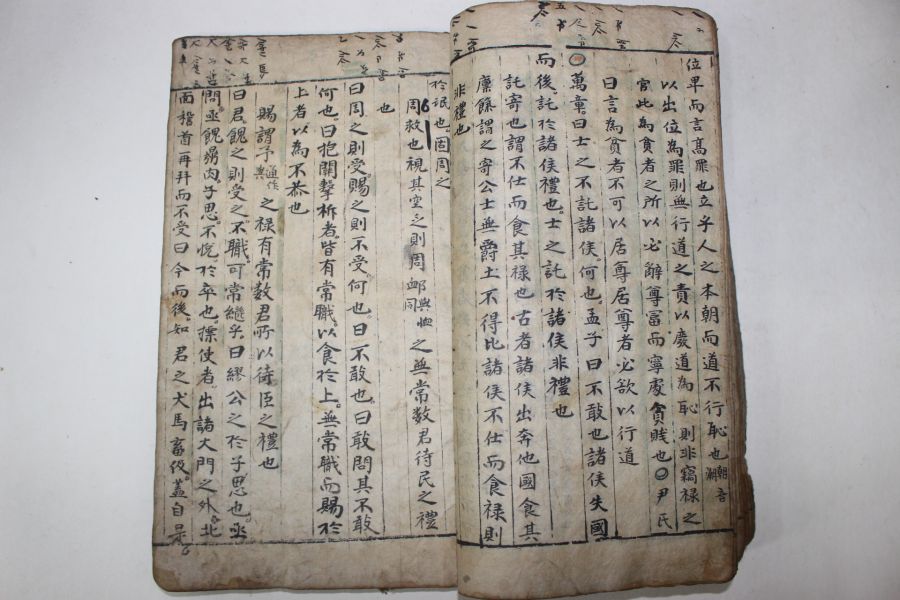 位卑而言高罪也立乎人之本朝而道不行恥也朝音潮
以出位為罪則無行道之責以廢道為恥則非竊祿之
官此為貧者之所以必辭尊富而寧處貧賤也○尹氏
曰言為貧者不可以居尊居尊者必欲以行道
○萬章曰士之不託諸侯何也孟子曰不敢也諸侯失國
而後託於諸侯禮也士之託於諸侯非禮也
託寄也謂不仕而食其祿也古者諸侯出奔他國食其
廩餼謂之寄公士無爵土不得比諸侯不仕而食祿則
非禮也
於氓也固周之
周救也視其空乏則周卹與恤同之無常数君待民之禮
也
曰周之則受賜之則不受何也曰不敢也曰敢問其不敢
何也曰抱關擊柝者皆有常職以食於上無常職而賜於
上者以為不恭也
賜謂予與通作之禄有常数君所以待臣之禮也
曰君餽之則受之不職可常繼乎曰繆公之於子思也亟
問亟餽鼎肉子思不悅於卒也摽使者出諸大門之外北
面稽首再拜而不受曰今而後知君之犬馬畜伋蓋自是